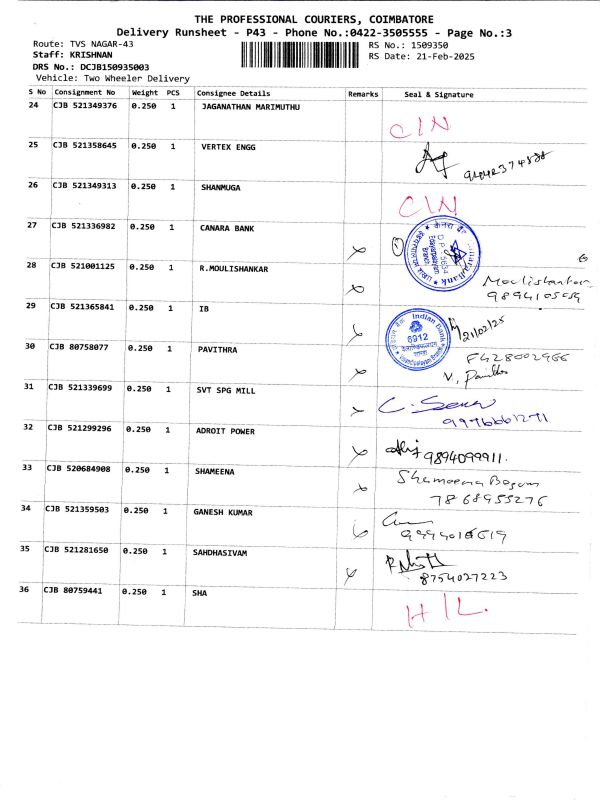 THE PROFESSIONAL COURIERS, COIMBATORE
Delivery Runsheet - P43 - Phone No.:0422-3505555 - Page No.:3
Route: TVS NAGAR-43 RS No.: 1509350
Staff: KRISHNAN RS Date: 21-Feb-2025
DRS No.: DCJB150935003
Vehicle: Two Wheeler Delivery
S No Consignment No Weight PCS Consignee Details Remarks Seal & Signature
24 CJB 521349376 0.250 1 JAGANATHAN MARIMUTHU
CIN
25 CJB 521358645 0.250 1 VERTEX ENGG
26 CJB 521349313 0.250 1 SHANMUGA
CIN
27 CJB 521336982 0.250 1 CANARA BANK
28 CJB 521001125 0.250 1 R.MOULISHANKAR
Moulishankar
29 CJB 521365841 0.250 1 IB
Indian Bank
6912
21/02/25
30 CJB 80758077 0.250 1 PAVITHRA
31 CJB 521339699 0.250 1 SVT SPG MILL
9976661271
32 CJB 521299296 0.250 1 ADROIT POWER
9894099911
33 CJB 520684908 0.250 1 SHAMEENA
Shameena Begam
7868955276
34 CJB 521359503 0.250 1 GANESH KUMAR
35 CJB 521281650 0.250 1 SAHDHASIVAM
8754027223
36 CJB 80759441 0.250 1 SHA
H IL.